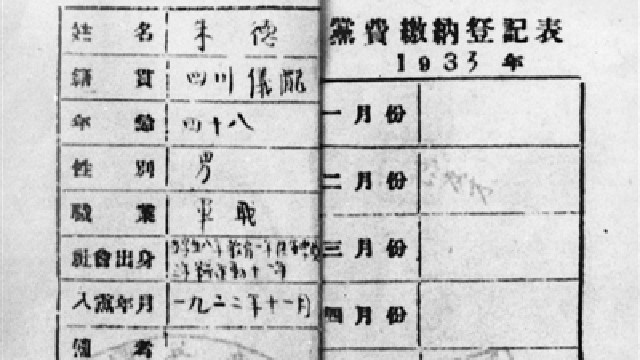 姓名 朱德
籍貫 四川儀隴
年齡 四十八
性別 男
職業 軍職
社會出身
入黨年月 一九二二年十一月
備考
黨費繳納登記表
1933年
一月份
二月份
三月份
四月份